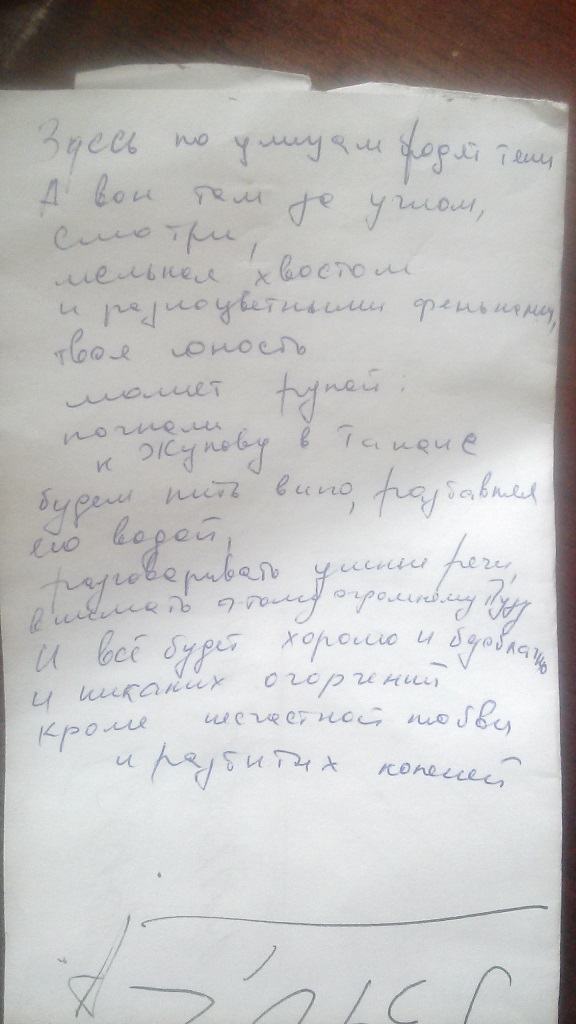 Здесь по улицам бродят тени
А вон там за углом,
смотри,
мелькая хвостом
и разноцветными феньками,
твоя юность
машет рукой:
погнали
к Жукову в Танаис
будем пить вино, разбавляя
его водой,
разговаривать умные речи,
внимать этому огромному
И всё будет хорошо и безоблачно
и никаких огорчений
кроме несчастной любви
и разбитых коленей